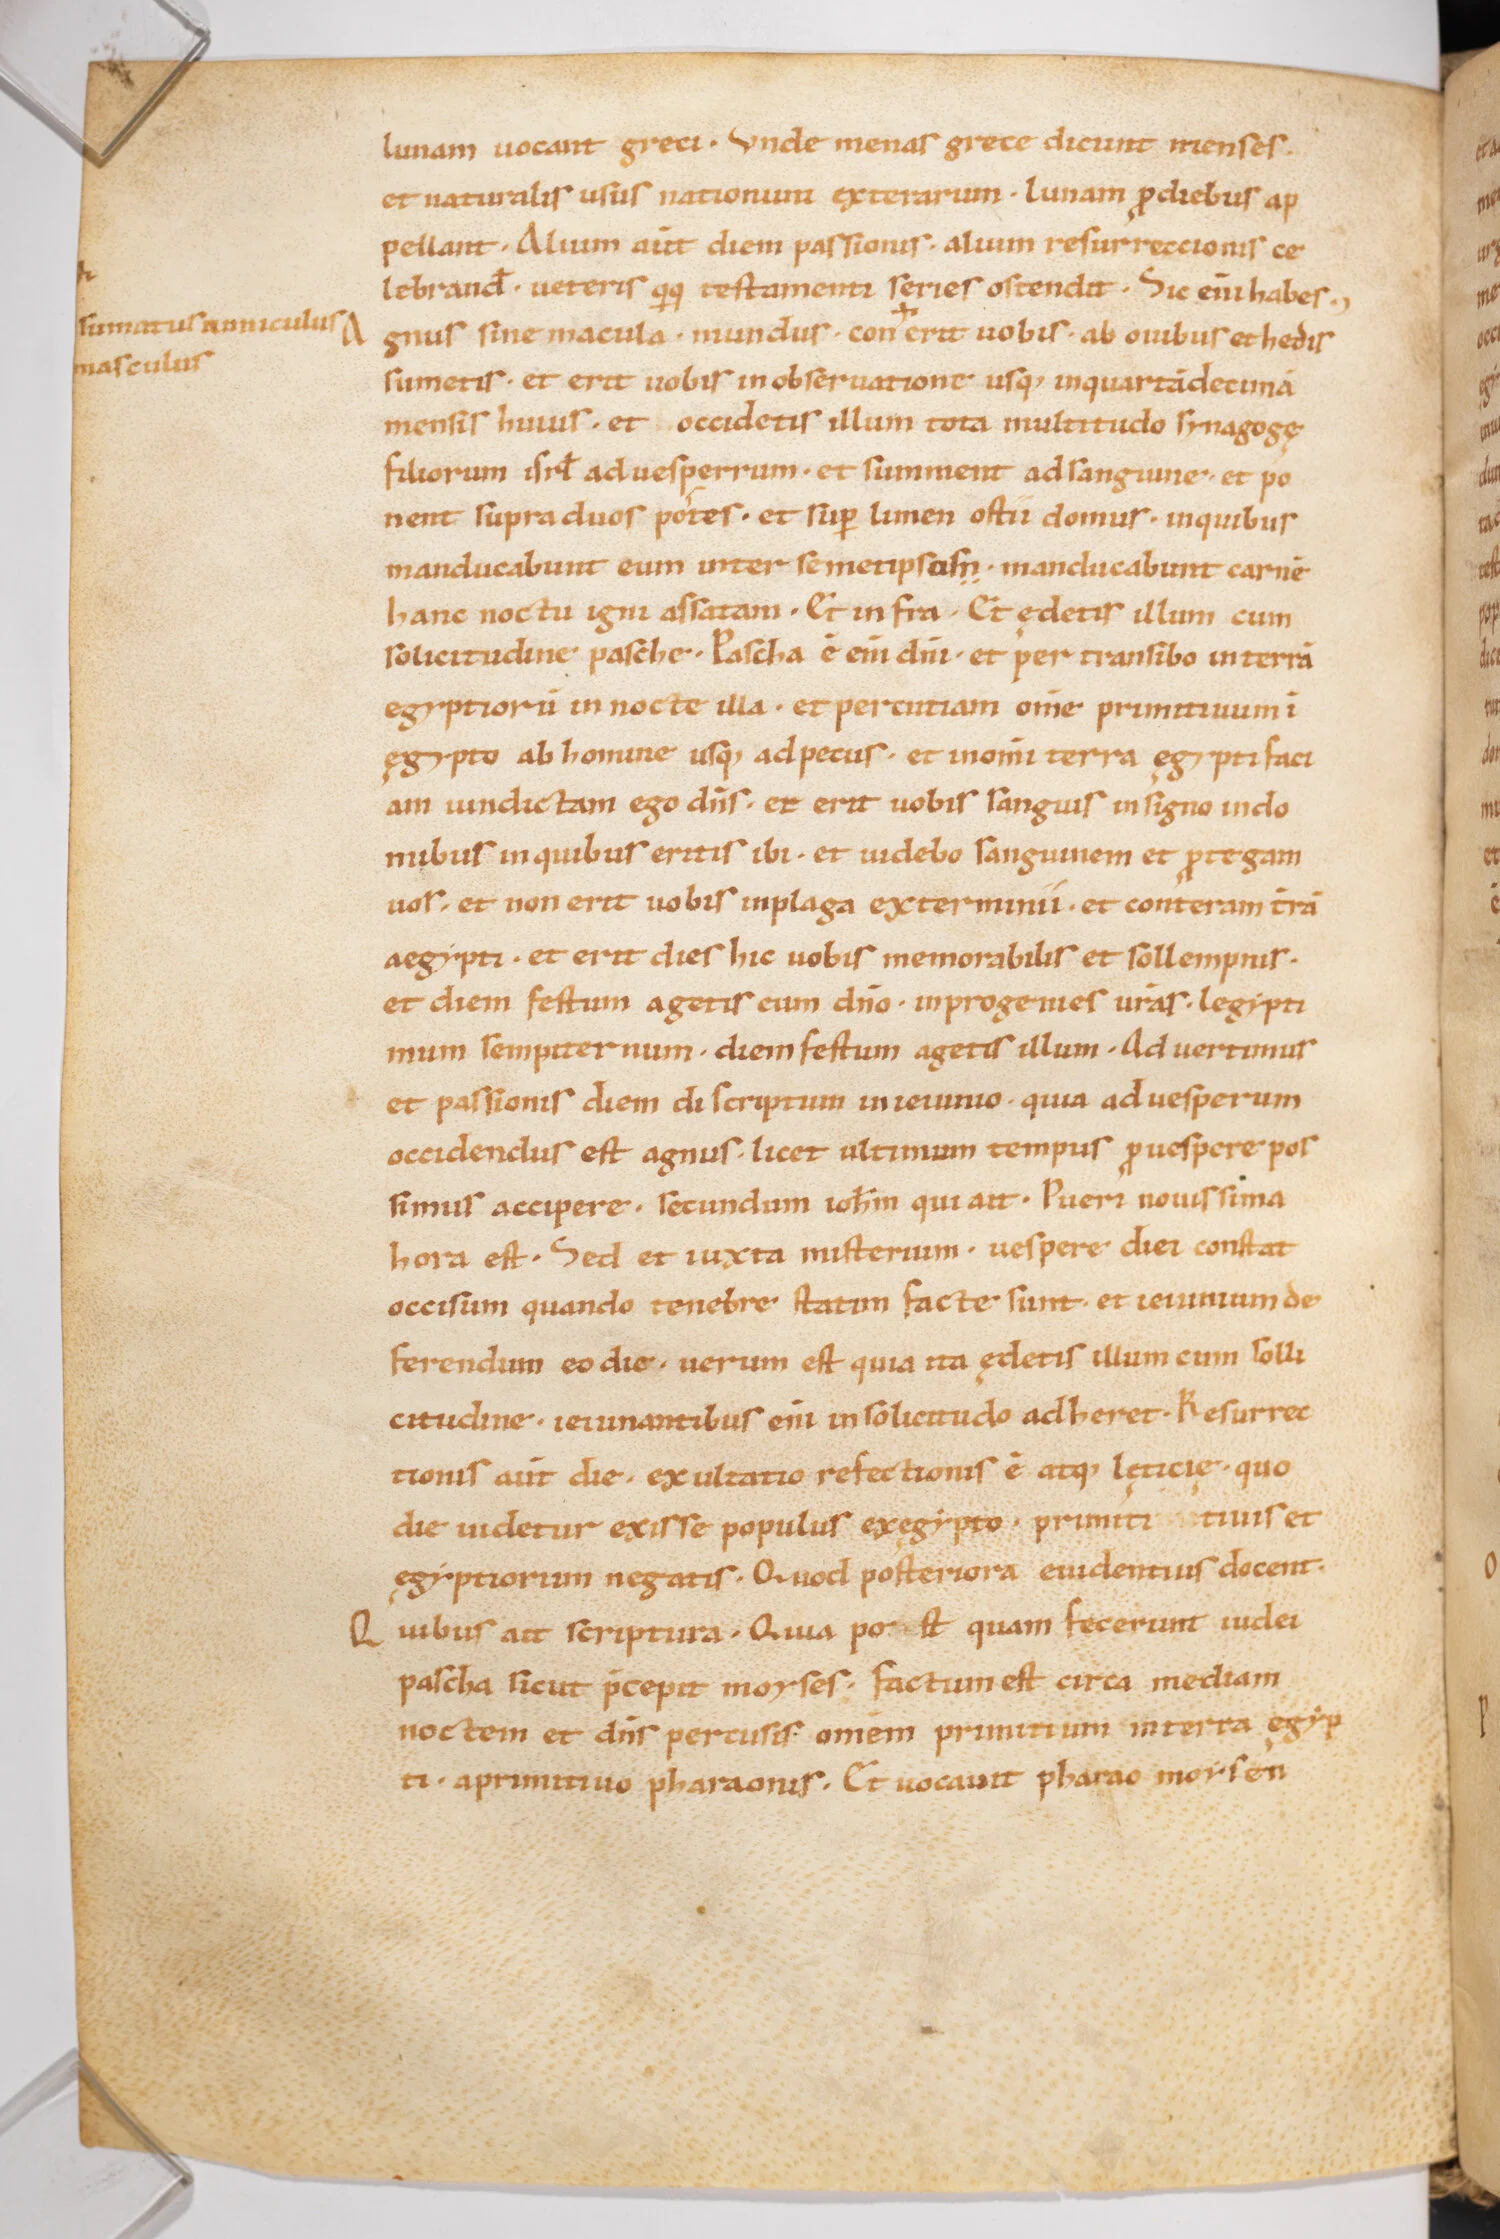 lunam uocant greci · Vnde menas grece dicunt menses ·
et naturalis usus nationum exterarum · lunam ꝓ diebus ap
pellant · Alium aūt diem passionis · alium resurreccionis ce
lebrand̄ · ueteris q̨q; testamenti series ostendit · Sic eni̅ habes ·,
sumatus anniculus
masculus
A gnus sine macula · mundus · con erit uobis · ab ouibus et hedis
sumetis · et erit uobis in obseruatione usq, in quartā decimā
mensis huius · et occidetis illum tota multitudo synagogę
filiorum isrł ad uesperrum · et summent ad sanguine · et po
nent supra duos postes · et suꝑ limen ostii domus · in quibus
manducabunt eum inter semetipsos · manducabunt carnē
hanc noctu igni assatam · Et infra · Et ędetis illum cum
solicitudine pasche · Pascha ē eni̅ dn̄i · et per transibo in terrā
egyptiorū in nocte illa · et percutiam om̄e primitiuum i
ęgypto ab homine usq, ad pecus · et in om̄i terra ęgypti faci
am uindictam ego dn̄s · et erit uobis sanguis in signo in do
mibus in quibus eritis ibi · et uidebo sanguinem et ꝓtegam
uos · et non erit uobis in plaga exterminii · et conteram t̄rā
aegypti · et erit dies hic uobis memorabilis et sollempnis ·
et diem festum agetis eum dn̄o · in progenies ur̄as · legypti
mum sempiternum · diem festum agetis illum · Aduertimus
et passionis diem discriptum in ieiunio · quia ad uesperum
occidendus est agnus · licet ultimum tempus ꝓ uespere pos
simus accipere · secundum ioh̄m qui ait · Pueri nouissima
hora est · Sed et iuxta misterium · uespere diei constat
occisum quando tenebre statim facte sunt · et ieiunium de
ferendum eo die · uerum est quia ita ędetis illum cum solli
citudine · ieiunantibus eni̅ in solicitudo adheret · Resurrec
tionis aūt die · exultatio refectionis ē atq, lęticię · quo
die uidetur exisse populus ex ęgypto · primiti tiuis et
ęgyptiorum negatis · Quod posteriora euidentius docent ·
Q uibus ait scriptura · Quia po st quam fecerunt iudei
pascha sicut p̄cepit moyses · factum est circa mediam
noctem et dn̄s percusis om̄em primitium in terra ęgyp
ti · a primitiuo pharaonis · Et uocauit pharao moysen